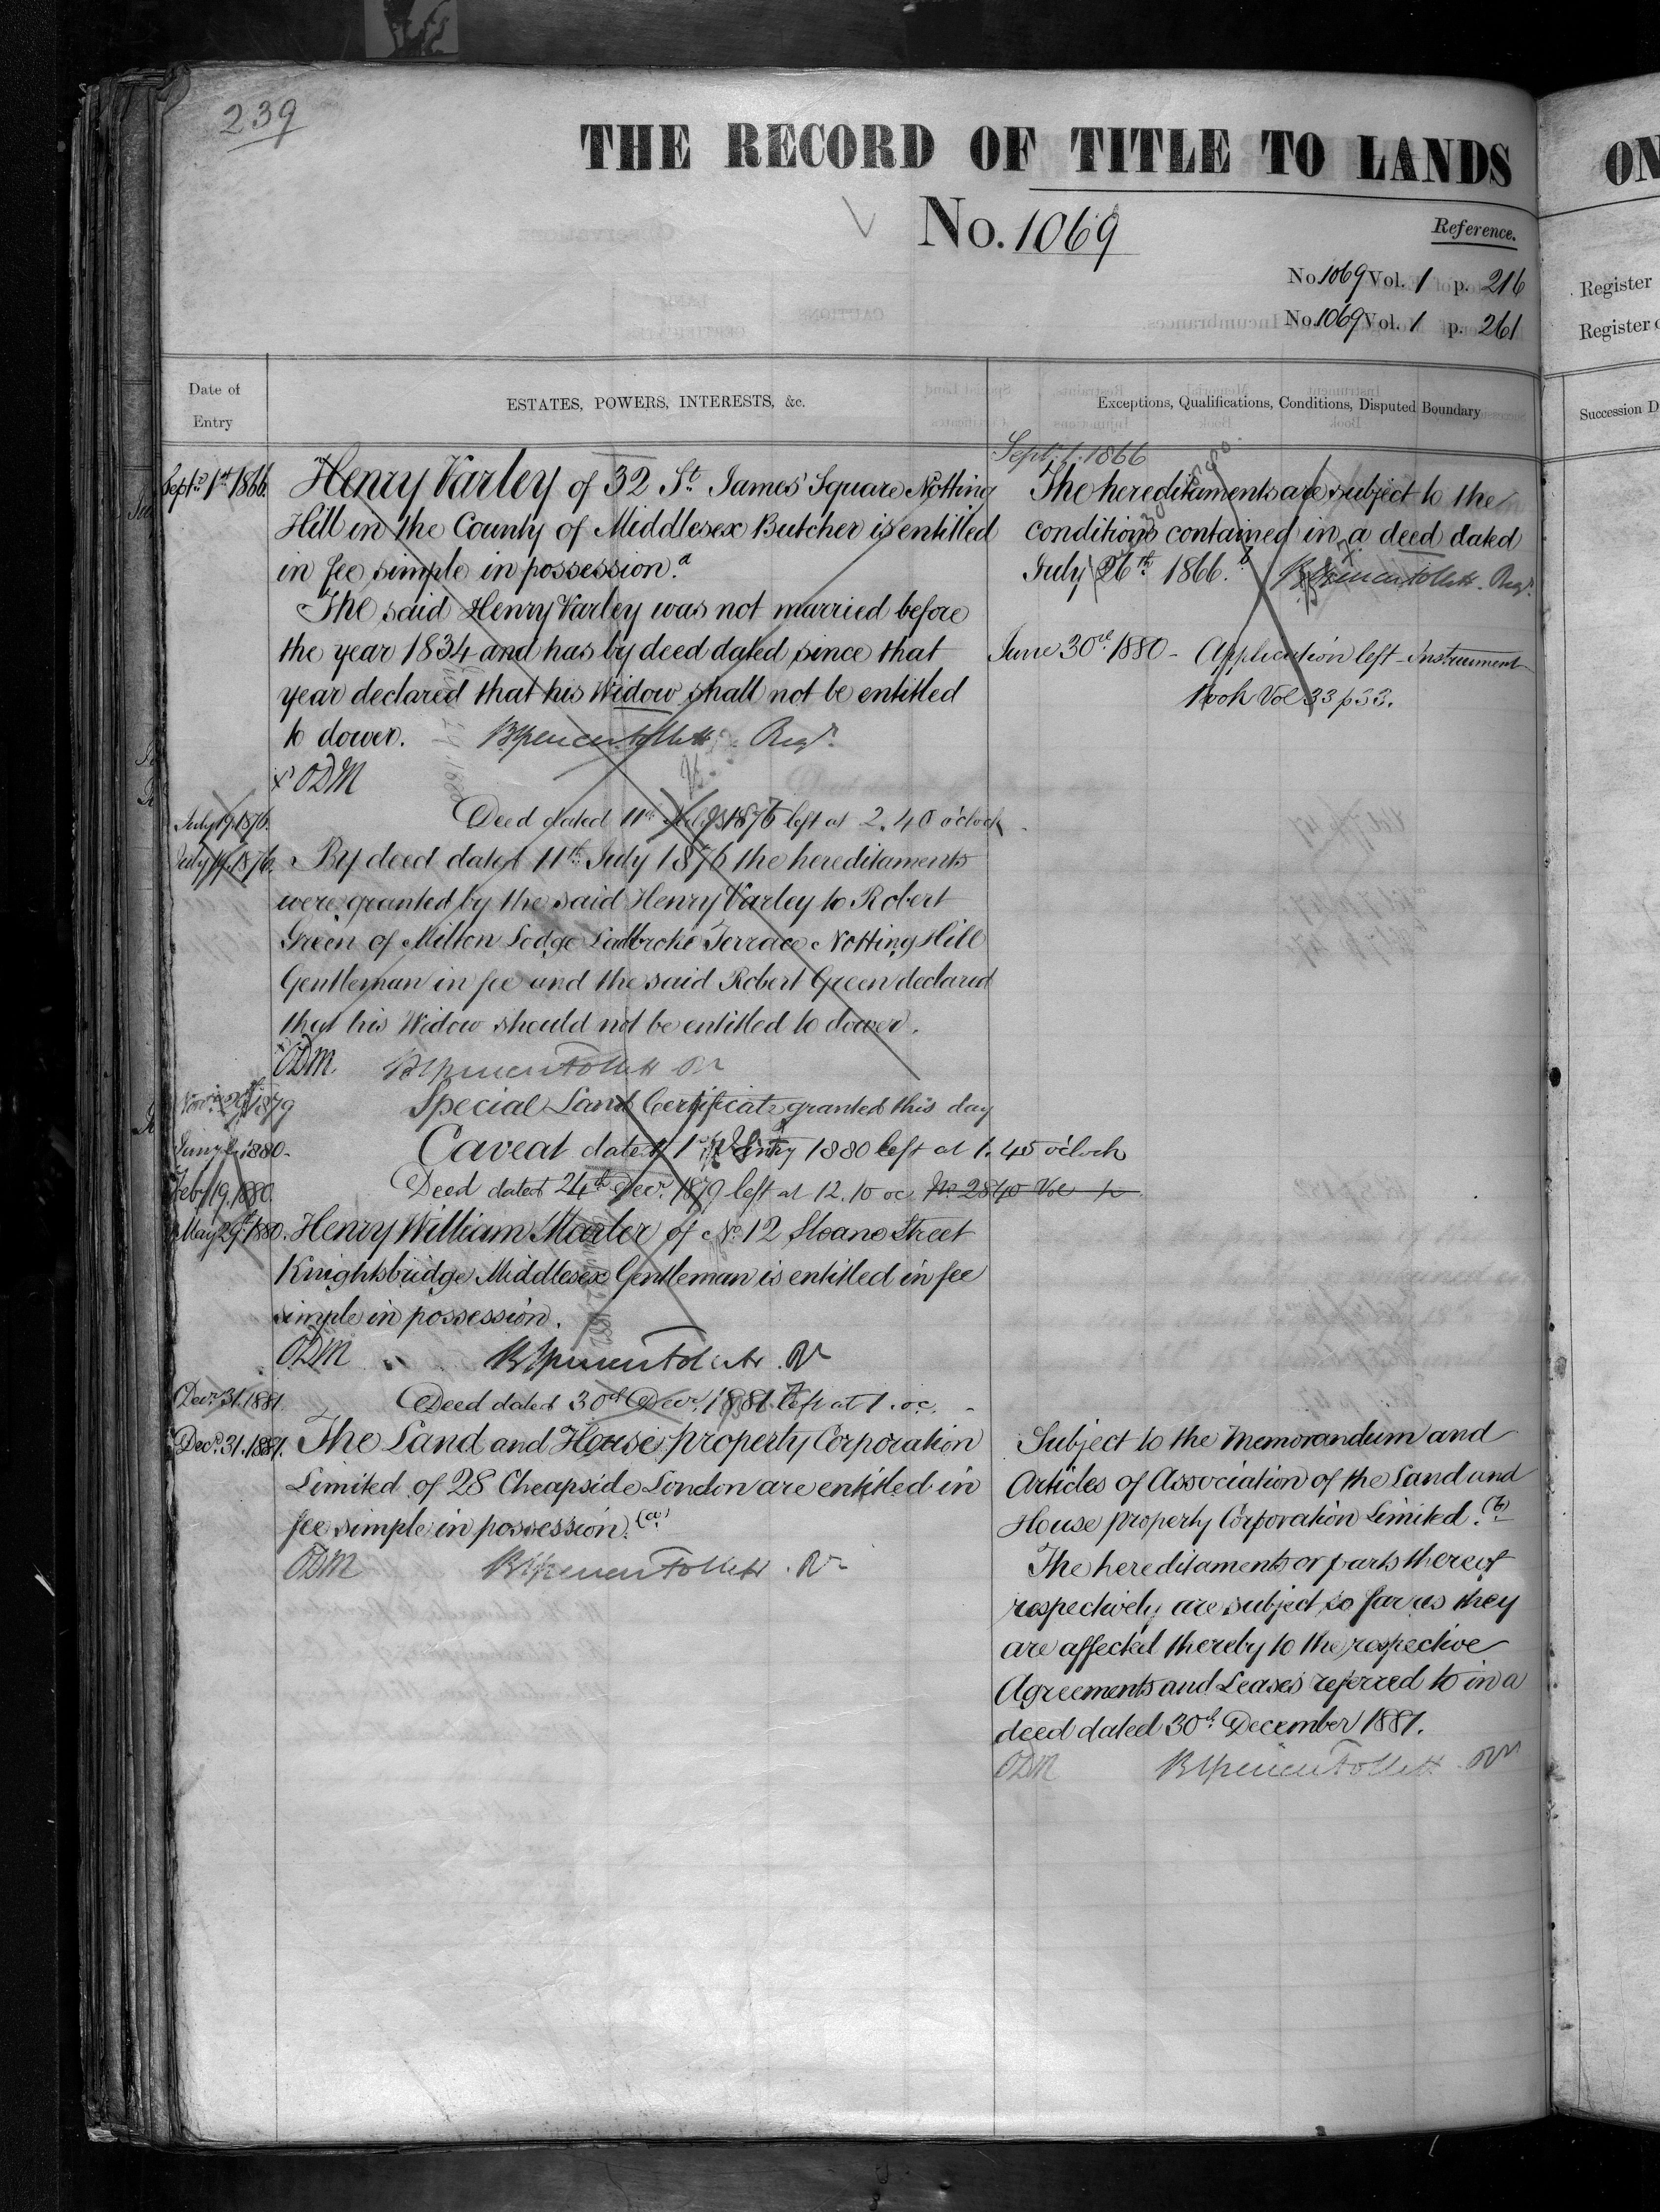 239
THE RECORD OF TITLE TO LANDS
ON
No. 1069
Reference.
No 1069 Vol. 1 p. 216
No 1069 Vol. 1 p. 261
Register
Register
Date of Entry
ESTATES, POWERS, INTERESTS, &c.
Exceptions, Qualifications, Conditions, Disputed Boundary
Succession D
Septr. 1st 1866. Henry Varley of 32 St. James' Square Notting
Hill in the County of Middlesex Butcher is entitled
in fee simple in possession. a
The said Henry Varley was not married before
the year 1834 and has by deed dated since that
year declared that his Widow shall not be entitled
to dower. Regr.
ODM
July 19. 1876. Deed dated 11th July 1876 left at 2.40 o'clock
July 19. 1876. By deed dated 11th July 1876 the hereditaments
were granted by the said Henry Varley to Robert
Green of Milton Lodge Ladbroke Terrace Notting Hill
Gentleman in fee and the said Robert Green declared
that his Widow should not be entitled to dower.
ODM
1879 Special Land Certificate granted this day
1880. Caveat dated 1880 left at 1.45 o'clock
Feby 19. 1880. Deed dated 24th Decr. 1879 left at 12.10 oc No 2840 Vol p
May 29th 1880. Henry William Marler of No. 12 Sloane Street
Knightsbridge Middlesex Gentleman is entitled in fee
simple in possession.
ODM
Decr. 31. 1881. Deed dated 30th Decr. 1881 left at 1. oc.
Decr. 31. 1881. The Land and House property Corporation
Limited of 28 Cheapside London are entitled in
fee simple in possession. (a)
ODM
Sept. 1. 1866
The hereditaments are subject to the
conditions contained in a deed dated
July 26th 1866. b Regr.
June 30th 1880 - Application left - Instrument
Book Vol 33 p 33.
Subject to the Memorandum and
Articles of Association of the Land and
House property Corporation Limited. (b)
The hereditaments or parts thereof
respectively are subject so far as they
are affected thereby to the respective
Agreements and Leases referred to in a
deed dated 30th December 1881.
ODM